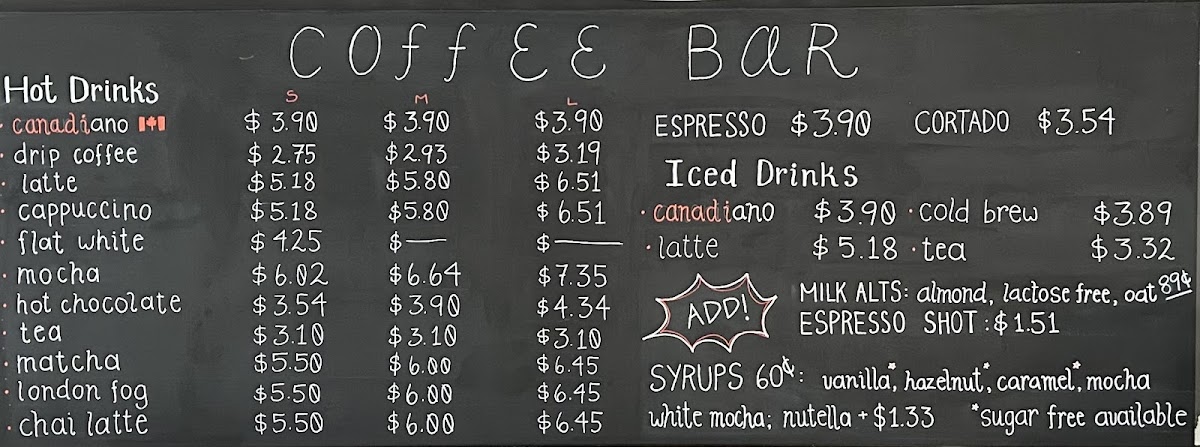 COffEE BaR
Hot Drinks
S M L
· canadiano $3.90 $3.90 $3.90
· drip coffee $2.75 $2.93 $3.19
· latte $5.18 $5.80 $6.51
· cappuccino $5.18 $5.80 $6.51
· flat white $4.25 $— $—
· mocha $6.02 $6.64 $7.35
· hot chocolate $3.54 $3.90 $4.34
· tea $3.10 $3.10 $3.10
· matcha $5.50 $6.00 $6.45
· london fog $5.50 $6.00 $6.45
· chai latte $5.50 $6.00 $6.45
ESPRESSO $3.90 CORTADO $3.54
Iced Drinks
· canadiano $3.90 · cold brew $3.89
· latte $5.18 · tea $3.32
ADD!
MILK ALTS: almond, lactose free, oat 89¢
ESPRESSO SHOT: $1.51
SYRUPS 60¢: vanilla*, hazelnut*, caramel*, mocha
white mocha; nutella + $1.33 *sugar free available